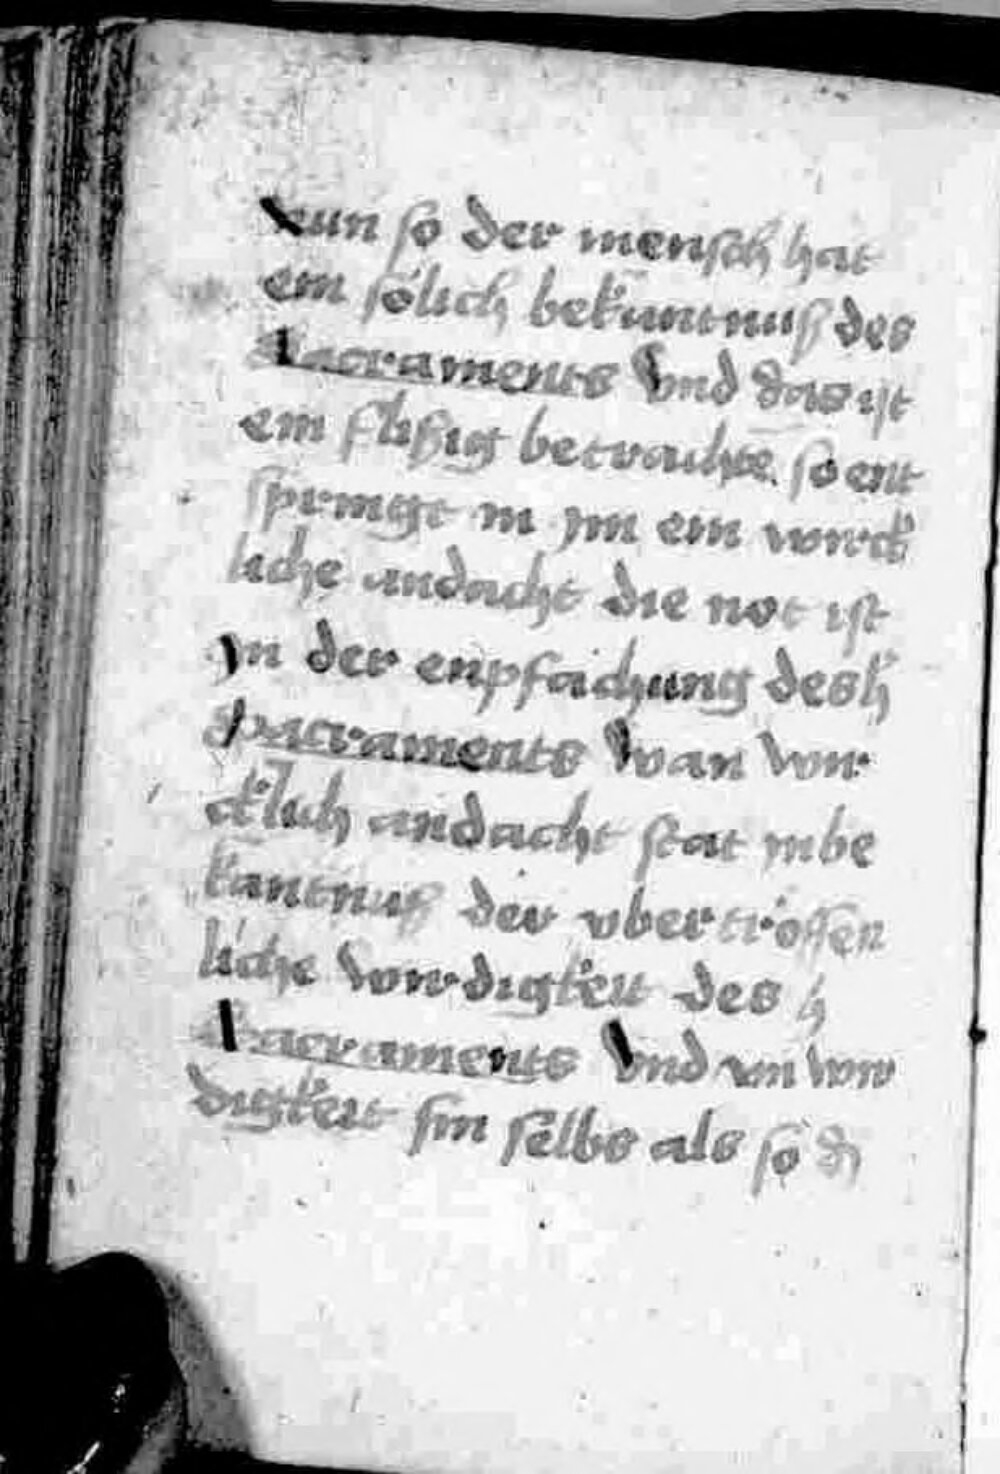 Nun so der mensch hat
ein sölich bekantnuß des
Sacraments Vnd das ist
ein flißig betrachte so ent
springt in jm ein würck
liche andacht die not ist
jn der enpfachung des h
Sacraments Wan wür
cklich andacht stat in be
kantnuß der vbertröffen
liche wirdigkeit des h
Sacraments Vnd vn wir
digkeit sin selbs als so d